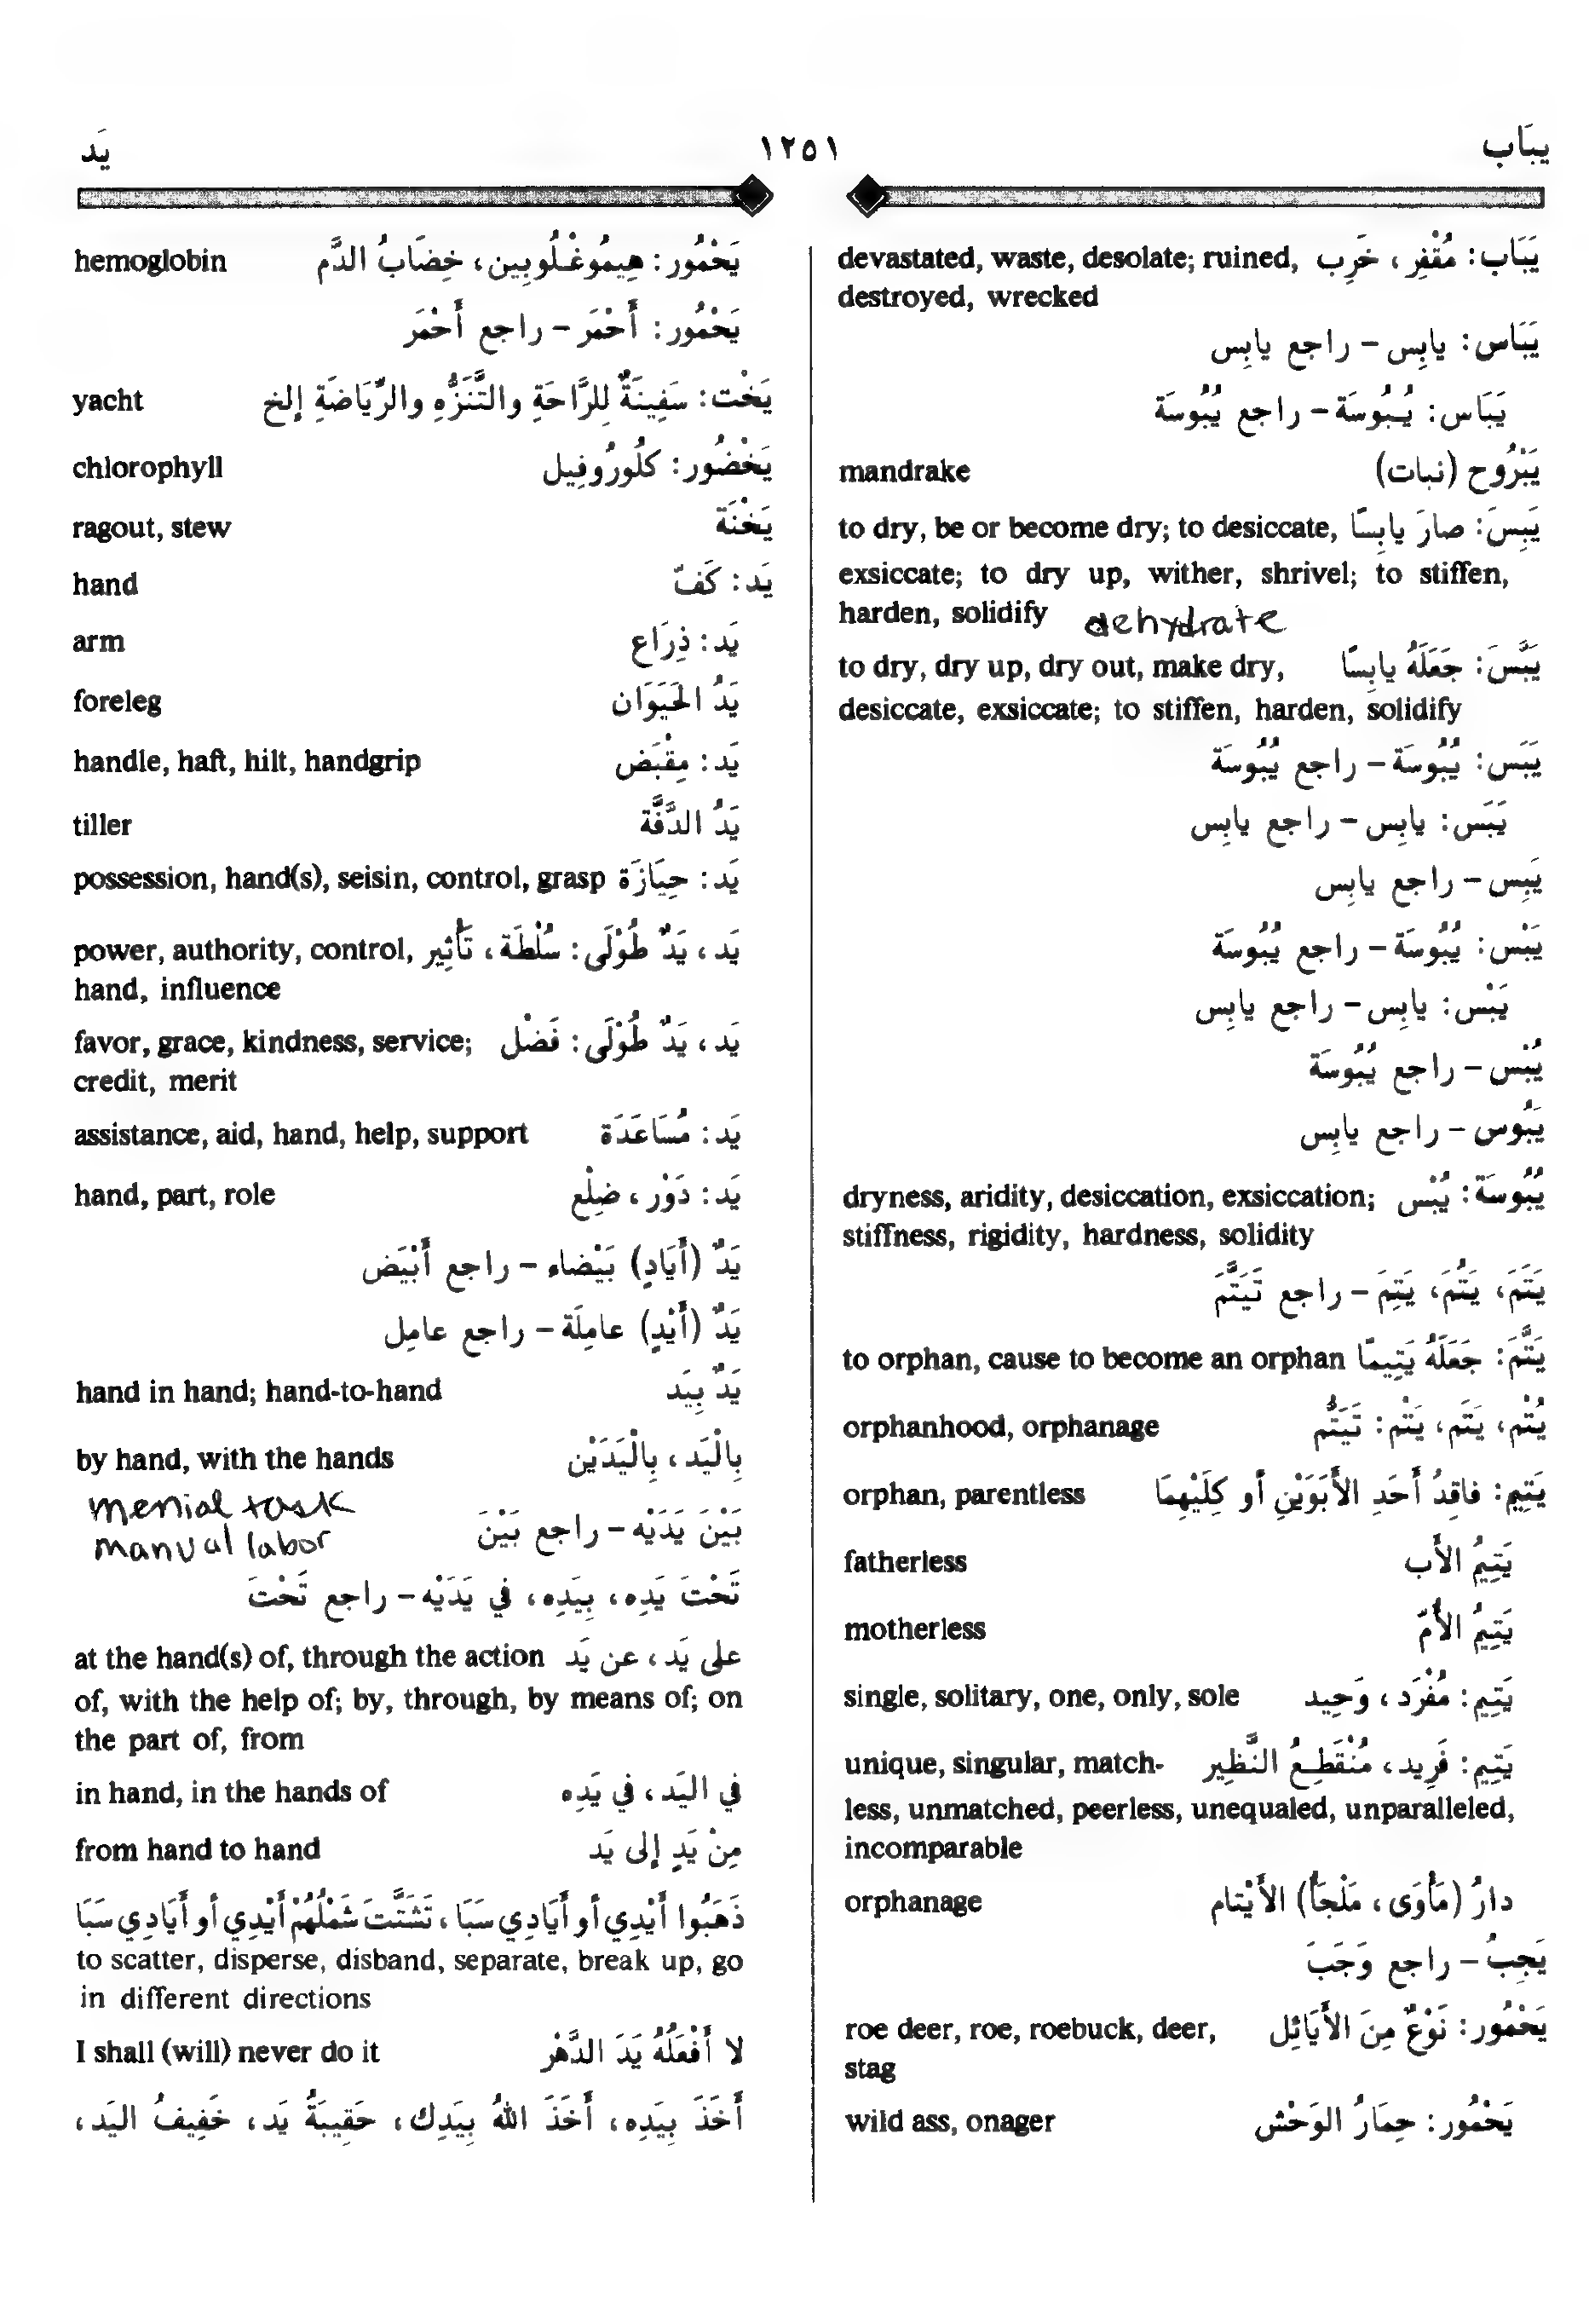 يبَاب
١٢٥١
يَد
يَبَاب: مُقْفِر، خَرِب devastated, waste, desolate; ruined,
destroyed, wrecked
يَبَاس: يابِس – راجع يابِس
يَبَاس: يُبُوسَة – راجع يُبُوسَة
يَبْرُوح (نبات) mandrake
يَبِسَ: صارَ يابِسًا to dry, be or become dry; to desiccate,
exsiccate; to dry up, wither, shrivel; to stiffen,
harden, solidify dehydrate
يَبَّسَ: جَعَلَهُ يابِسًا to dry, dry up, dry out, make dry,
desiccate, exsiccate; to stiffen, harden, solidify
يَبَس: يُبُوسَة – راجع يُبُوسَة
يَبَس: يابِس – راجع يابِس
يَبِس – راجع يابِس
يَبْس: يُبُوسَة – راجع يُبُوسَة
يَبْس: يابِس – راجع يابِس
يُبْس – راجع يُبُوسَة
يَبُوس – راجع يابِس
يُبُوسَة: يُبْس dryness, aridity, desiccation, exsiccation;
stiffness, rigidity, hardness, solidity
يَتَمَ، يَتُمَ، يَتِمَ – راجع تَيَتَّمَ
يَتَّمَ: جَعَلَهُ يَتِيمًا to orphan, cause to become an orphan
يُتْم، يَتَم، يَتْم: تَيَتُّم orphanhood, orphanage
يَتِيم: فاقِدُ أَحَدِ الأَبَوَيْنِ أو كِلَيْهِمَا orphan, parentless
يَتِيمُ الأَب fatherless
يَتِيمُ الأُمّ motherless
يَتِيم: مُفْرَد، وَحِيد single, solitary, one, only, sole
يَتِيم: فَرِيد، مُنْقَطِعُ النَّظِير unique, singular, match-
less, unmatched, peerless, unequaled, unparalleled,
incomparable
دارُ (مَأْوَى، مَلْجَأُ) الأَيْتام orphanage
يَجِبُ – راجع وَجَبَ
يَحْمُور: نَوْعٌ مِنَ الأَيَائِل roe deer, roe, roebuck, deer,
stag
يَحْمُور: حِمَارُ الوَحْش wild ass, onager
يَحْمُور: هِيمُوغْلُوبِين، خِضَابُ الدَّم hemoglobin
يَحْمُور: أَحْمَر – راجع أَحْمَر
يَخْت: سَفِينَةٌ لِلرَّاحَةِ والتَّنَزُّهِ والرِّيَاضَةِ إلخ yacht
يَخْضُور: كلُورُوفِيل chlorophyll
يَخْنَة ragout, stew
يَد: كَفّ hand
يَد: ذِرَاع arm
يَدُ الحَيَوَان foreleg
يَد: مِقْبَض handle, haft, hilt, handgrip
يَدُ الدَّفَّة tiller
يَد: حِيَازَة possession, hand(s), seisin, control, grasp
يَد، يَدٌ طُوْلَى: سُلْطَة، تَأْثِير power, authority, control,
hand, influence
يَد، يَدٌ طُوْلَى: فَضْل favor, grace, kindness, service;
credit, merit
يَد: مُسَاعَدَة assistance, aid, hand, help, support
يَد: دَوْر، ضِلْع hand, part, role
يَدٌ (أَيَادٍ) بَيْضاء – راجع أَبْيَض
يَدٌ (أَيْدٍ) عامِلَة – راجع عامِل
يَدٌ بِيَد hand in hand; hand-to-hand
بِالْيَد، بِالْيَدَيْن by hand, with the hands
menial task
بَيْنَ يَدَيْه – راجع بَيْنَ
manual labor
تَحْتَ يَدِه، بِيَدِه، في يَدَيْه – راجع تَحْتَ
على يَد، عن يَد at the hand(s) of, through the action
of, with the help of; by, through, by means of; on
the part of, from
في اليَد، في يَدِه in hand, in the hands of
مِنْ يَدٍ إلى يَد from hand to hand
ذَهَبُوا أَيْدِي أو أَيَادِي سَبَا، تَشَتَّتَ شَمْلُهُمْ أَيْدِي أو أَيَادِي سَبَا
to scatter, disperse, disband, separate, break up, go
in different directions
لا أَفْعَلُهُ يَدَ الدَّهْر I shall (will) never do it
أَخَذَ بِيَدِه، أَخَذَ اللهُ بِيَدِك، حَقِيبَةُ يَد، خَفِيفُ اليَد،